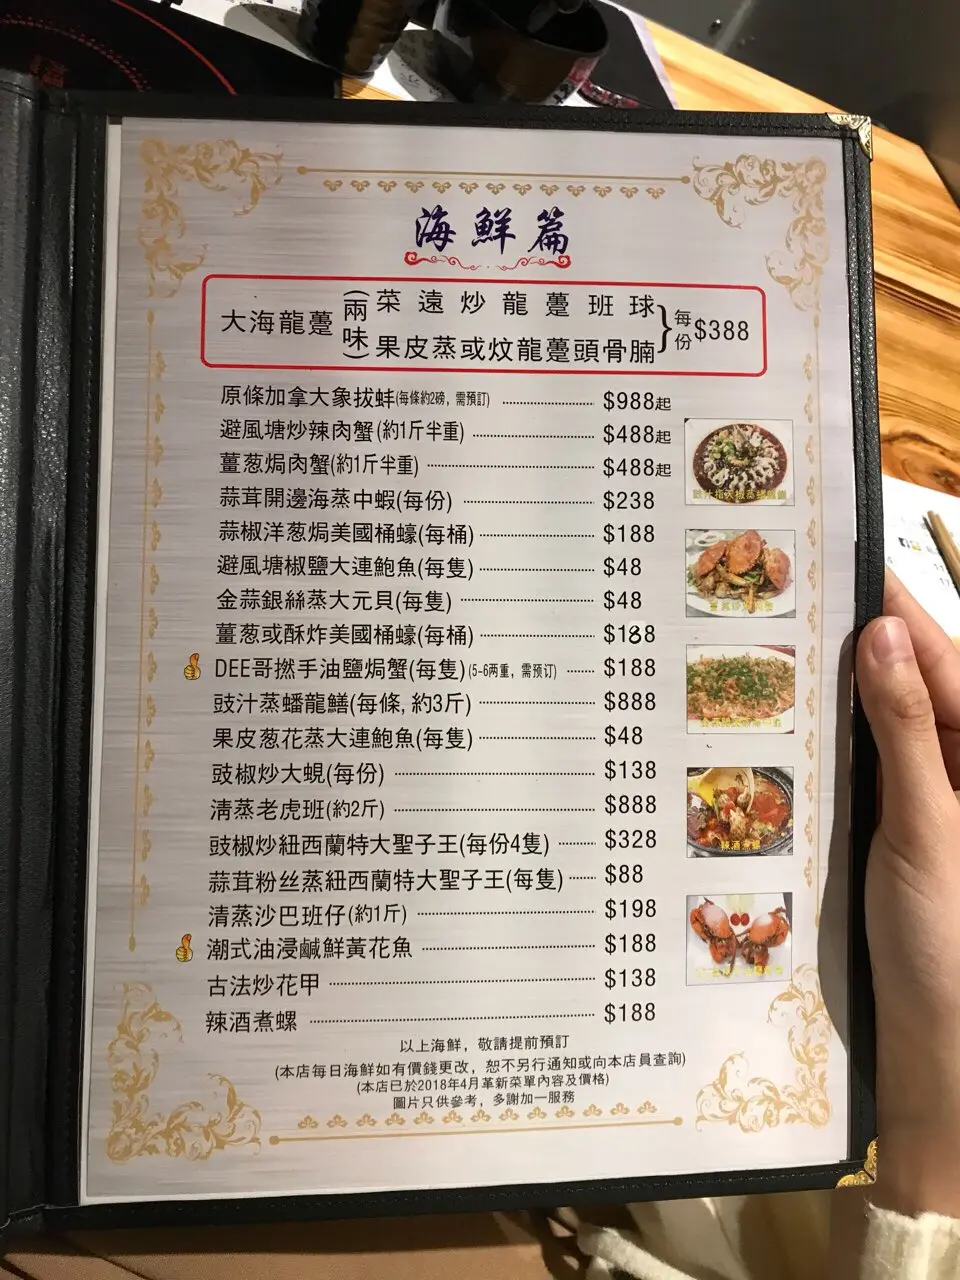 海鮮篇
大海龍躉(兩味){菜遠炒龍躉班球 果皮蒸或炆龍躉頭骨腩}每份$388
原條加拿大象拔蚌(每條約2磅，需預訂) $988起
避風塘炒辣肉蟹(約1斤半重) $488起
薑葱焗肉蟹(約1斤半重) $488起
蒜茸開邊海蒸中蝦(每份) $238
蒜椒洋葱焗美國桶蠔(每桶) $188
避風塘椒鹽大連鮑魚(每隻) $48
金蒜銀絲蒸大元貝(每隻) $48
薑葱或酥炸美國桶蠔(每桶) $188
DEE哥撚手油鹽焗蟹(每隻)(5-6两重，需预订) $188
豉汁蒸蟠龍鱔(每條, 約3斤) $888
果皮葱花蒸大連鮑魚(每隻) $48
豉椒炒大蜆(每份) $138
清蒸老虎班(約2斤) $888
豉椒炒紐西蘭特大聖子王(每份4隻) $328
蒜茸粉丝蒸紐西蘭特大聖子王(每隻) $88
清蒸沙巴班仔(約1斤) $198
潮式油浸鹹鮮黃花魚 $188
古法炒花甲 $138
辣酒煮螺 $188
辣酒煮螺
以上海鮮，敬請提前預訂
(本店每日海鮮如有價錢更改，恕不另行通知或向本店員查詢)
(本店已於2018年4月革新菜單內容及價格)
圖片只供參考，多謝加一服務